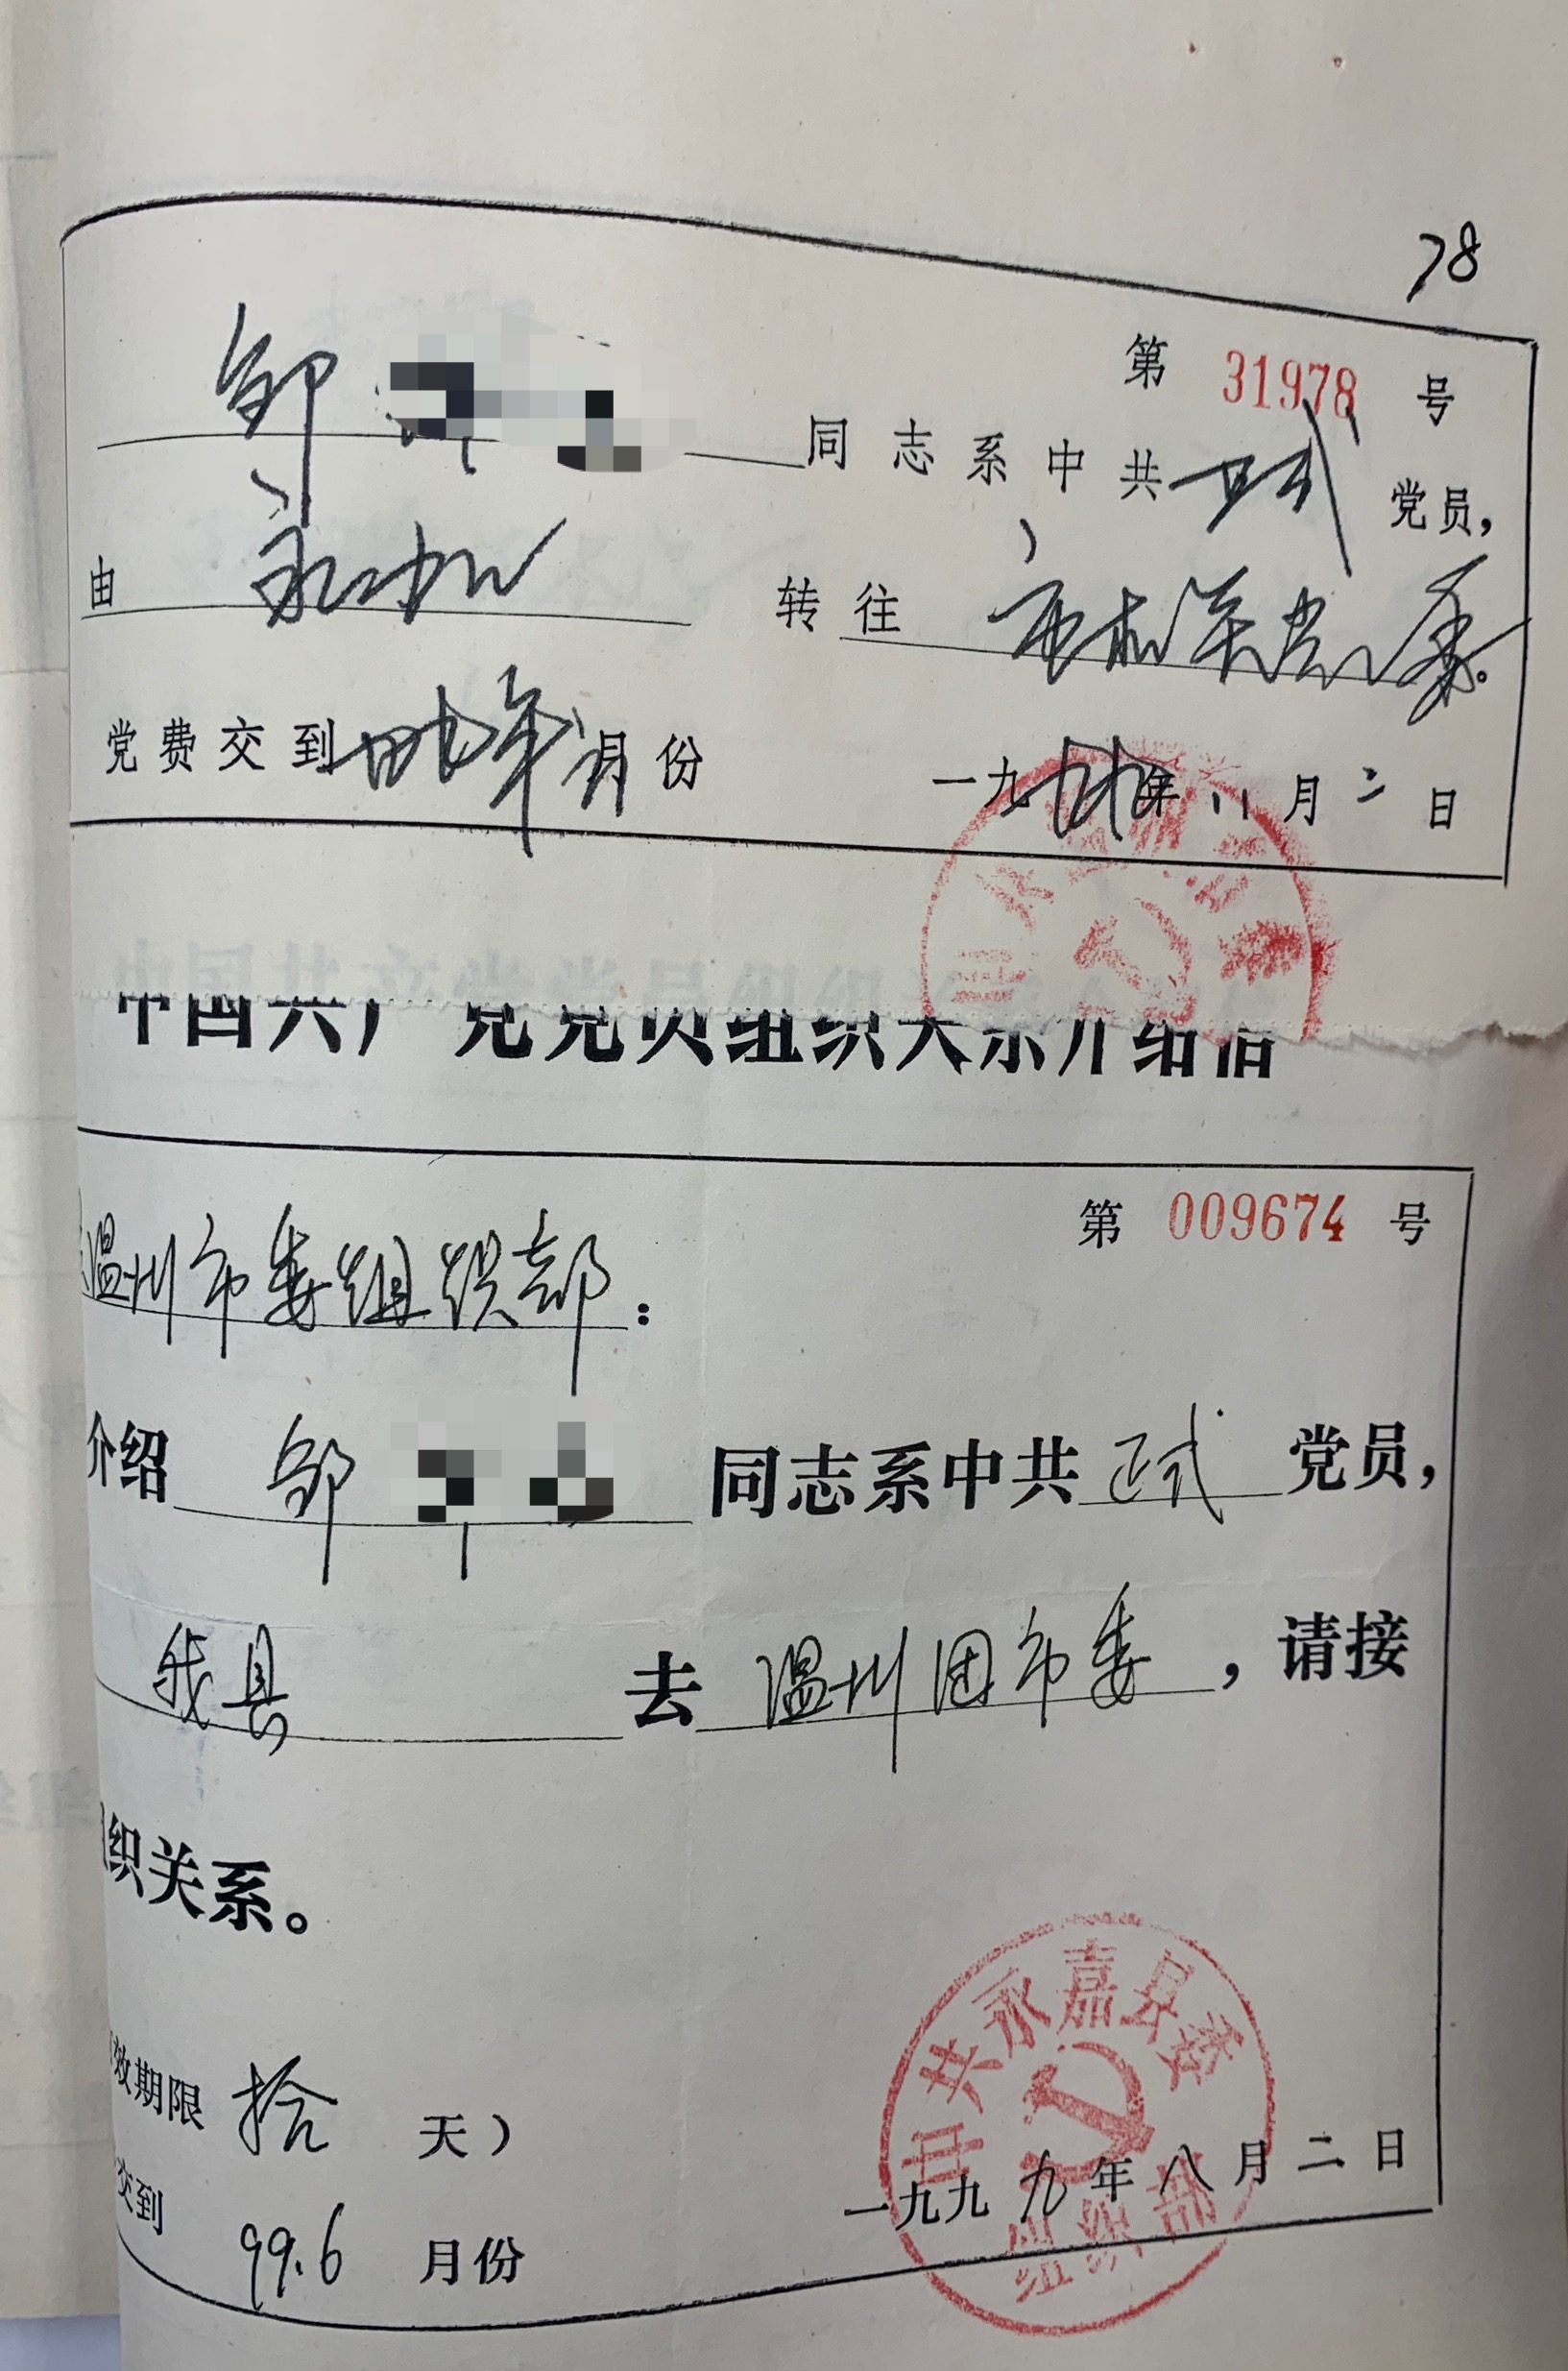 78
第 31978 号
邹 同志系中共正式党员，
由 永加 转往 市机关党委。
党费交到 月份
一九九九年八月二日
中国共产党党员组织关系介绍信
第 009674 号
温州市委组织部：
介绍 邹 同志系中共正式党员，
我县 去 温州团市委，请接
织关系。
效期限 拾 天）
交到 99.6 月份
一九九九年八月二日
中共永嘉县委
组织部